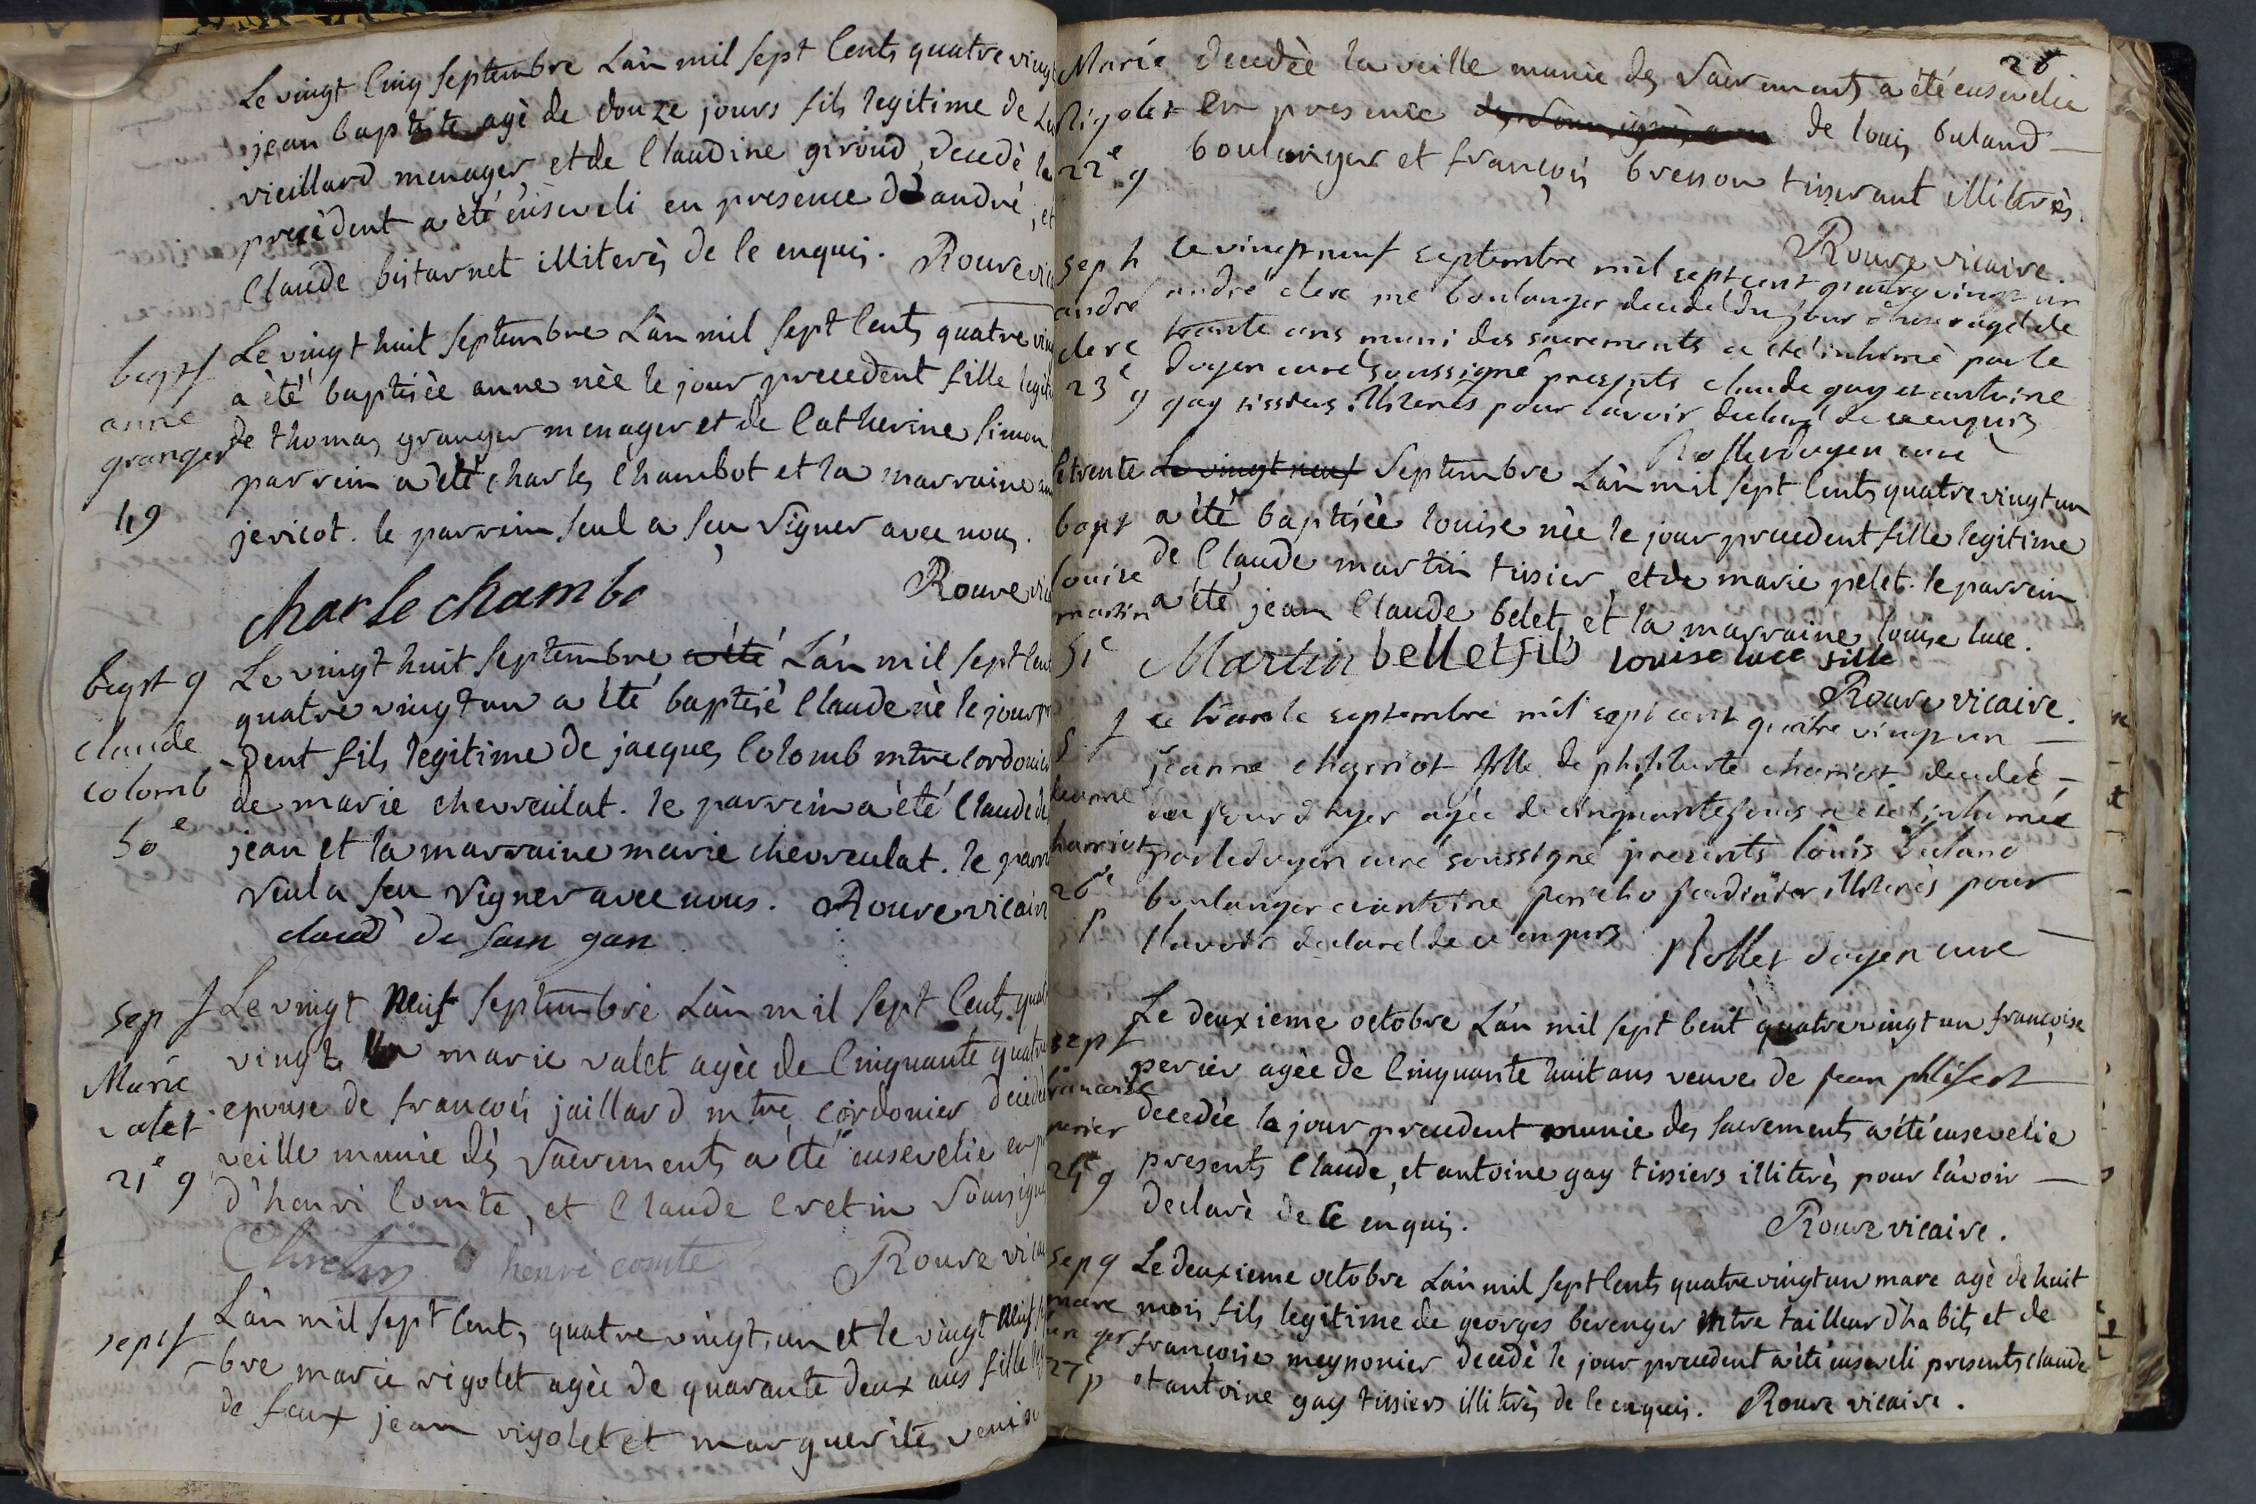 Le vingt cinq septembre L'an mil sept cents quatre vingt
jean baptiste agè de douze jours fils legitime de
vieillard menager et de Claudine giroud, decedè le
precèdent a èté ènseveli en presence d'andrè, et
Claude bistarnet illiterès de ce enquis. Rouve vic
bapt f
anne
granger
49
Le vingt huit septembre L'an mil sept cents quatre ving
a èté baptisèe anne nèe le jour precedent fille legit
de thomas granger menager et de Catherine simon
parrein a èté charles Chambot et la marraine
jericot. le parrein seul a sçu signer avec nous.
Rouve vic
charle chambo
bapt g
claude
colomb
50e
Le vingt huit septembre a èté L'an mil sept cent
quatre vingt un a èté baptisè Claude nè le jour
dent fils legitime de jacques Colomb mtre cordonier
de marie chevreulat. le parrein a èté Claude de
jean et la marraine marie chevreulat. le parre
seul a sçu signer avec nous. Rouve vicaire
claud de sain gan
sep f
Marie
valet
21e g
Le vingt neuf septembre L'an mil sept cents quat
vingt un marie valet agèe de Cinquante quatre
epouse de francois jaillard mtre cordonier decedè
veille munie dès sacrements a èté ensevelie en p
d'henri Comte, et Claude Cretin soussigné
henri comte Rouve vica
sept f
L'an mil sept cents quatre vingt un et le vingt neuf
bre marie rigolet agèe de quarante deux ans fille
de feux jean rigolet et marguerite
28
Marie
Rigolet
22e g
decedèe la veille munie des sacrements a èté ensevelie
en presence des soussignès de louis buland
boulanger et françois bresson tisserant illiterès.
Rouve vicaire.
sep h
andré
clerc
23e g
ce vingt neuf septembre mil sept cent quatre vingt un
andré clerc me boulanger decedé du jour d'hier agé de
trente ans muni des sacrements a eté inhumé par le
doyen curé soussigné presents claude gay et antoine
gay tissiers illiterés pour l'avoir declaré de ce enquis
Rollet doyen curé
bapt
louise
martin
51e
le trente Le vingt neuf septembre L'an mil sept cents quatre vingt un
a èté baptisèe louise nèe le jour precedent fille legitime
de Claude martin tissier, et de marie pelet. le parrein
a èté jean Claude belet, et la marraine louise luce.
Martin bellet fils louise luce fille
Rouve vicaire.
s f
jeanne
charriot
26e
p
ce trante septembre mil sept cent quatre vingt un
jeanne charriot fille de philiberte charriot decedée
du jour d'hyer agée de cinquante ans a eté inhumée
par le doyen curé soussigné presents louis buland
boulanger et antoine jardinier illiterés pour
l'avoir declaré de ce enquis Rollet doyen curé
sep f
francoise
perier
g
Le deuxieme octobre L'an mil sept cent quatre vingt un françoise
perier agèe de Cinquante huit ans veuve de jean philibert
decedèe le jour precedent munie des sacrements a èté ensevelie
presents Claude, et antoine gay tissiers illiterès pour l'avoir
declarè de ce enquis. Rouve vicaire.
sep g
marc
27 p
Le deuxieme octobre L'an mil sept cents quatre vingt un marc agè de huit
mois fils legitime de georges berenger mtre tailleur d'habits et de
françoise meynonier decedè le jour precedent a èté enseveli presents claude
et antoine gay tissiers illiterès de ce enquis. Rouve vicaire.